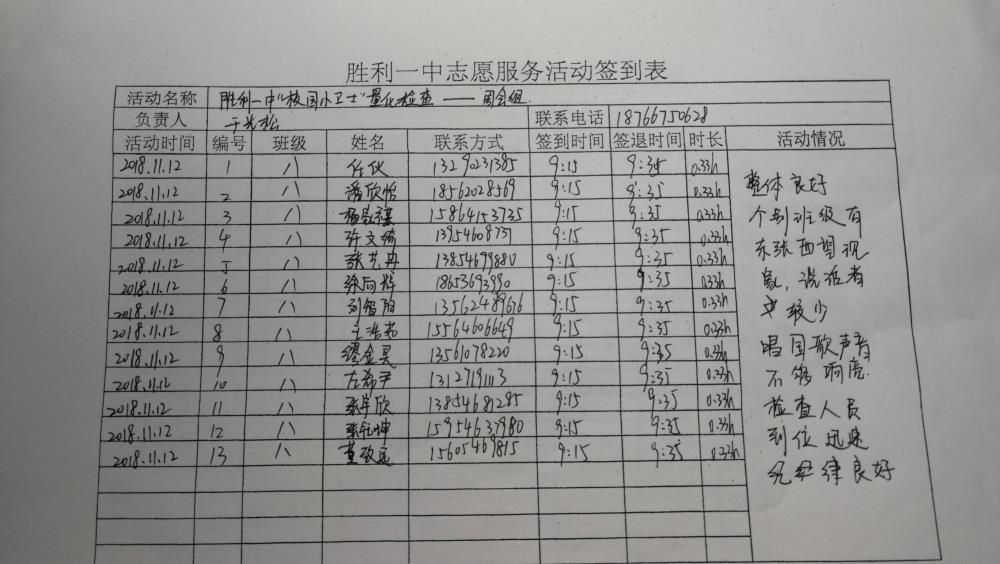 胜利一中志愿服务活动签到表
活动名称 胜利一中"校园小卫士"量化检查——周会组
负责人 于光松 联系电话 18766750628
活动时间 编号 班级 姓名 联系方式 签到时间 签退时间 时长 活动情况
2018.11.12 1 八 任 13290231385 9:15 9:35 0.33h
2018.11.12 2 八 潘欣怡 18562028569 9:15 9:35 0.33h
2018.11.12 3 八 15864153735 9:15 9:35 0.33h
2018.11.12 4 八 许文绮 1395460873 9:15 9:35 0.33h
2018.11.12 5 八 张艺冉 13854679880 9:15 9:35 0.33h
2018.11.12 6 八 徐向辉 9:15 9:35 0.33h
2018.11.12 7 八 刘智 13562489616 9:15 9:35 0.33h
2018.11.12 8 八 王浩 15564606649 9:15 9:35 0.33h
2018.11.12 9 八 缪金昊 13561078220 9:15 9:35 0.33h
2018.11.12 10 八 左希尹 13127191113 9:15 9:35 0.33h
2018.11.12 11 八 欣 13854681285 9:15 9:35 0.33h
2018.11.12 12 八 坤 15954637980 9:15 9:35 0.33h
2018.11.12 13 八 董致远 15605469815 9:15 9:35 0.33h
整体良好
个别班级有
东张西望现
象,说话者
较少
唱国歌声音
不够响亮
检查人员
到位迅速
纪律良好